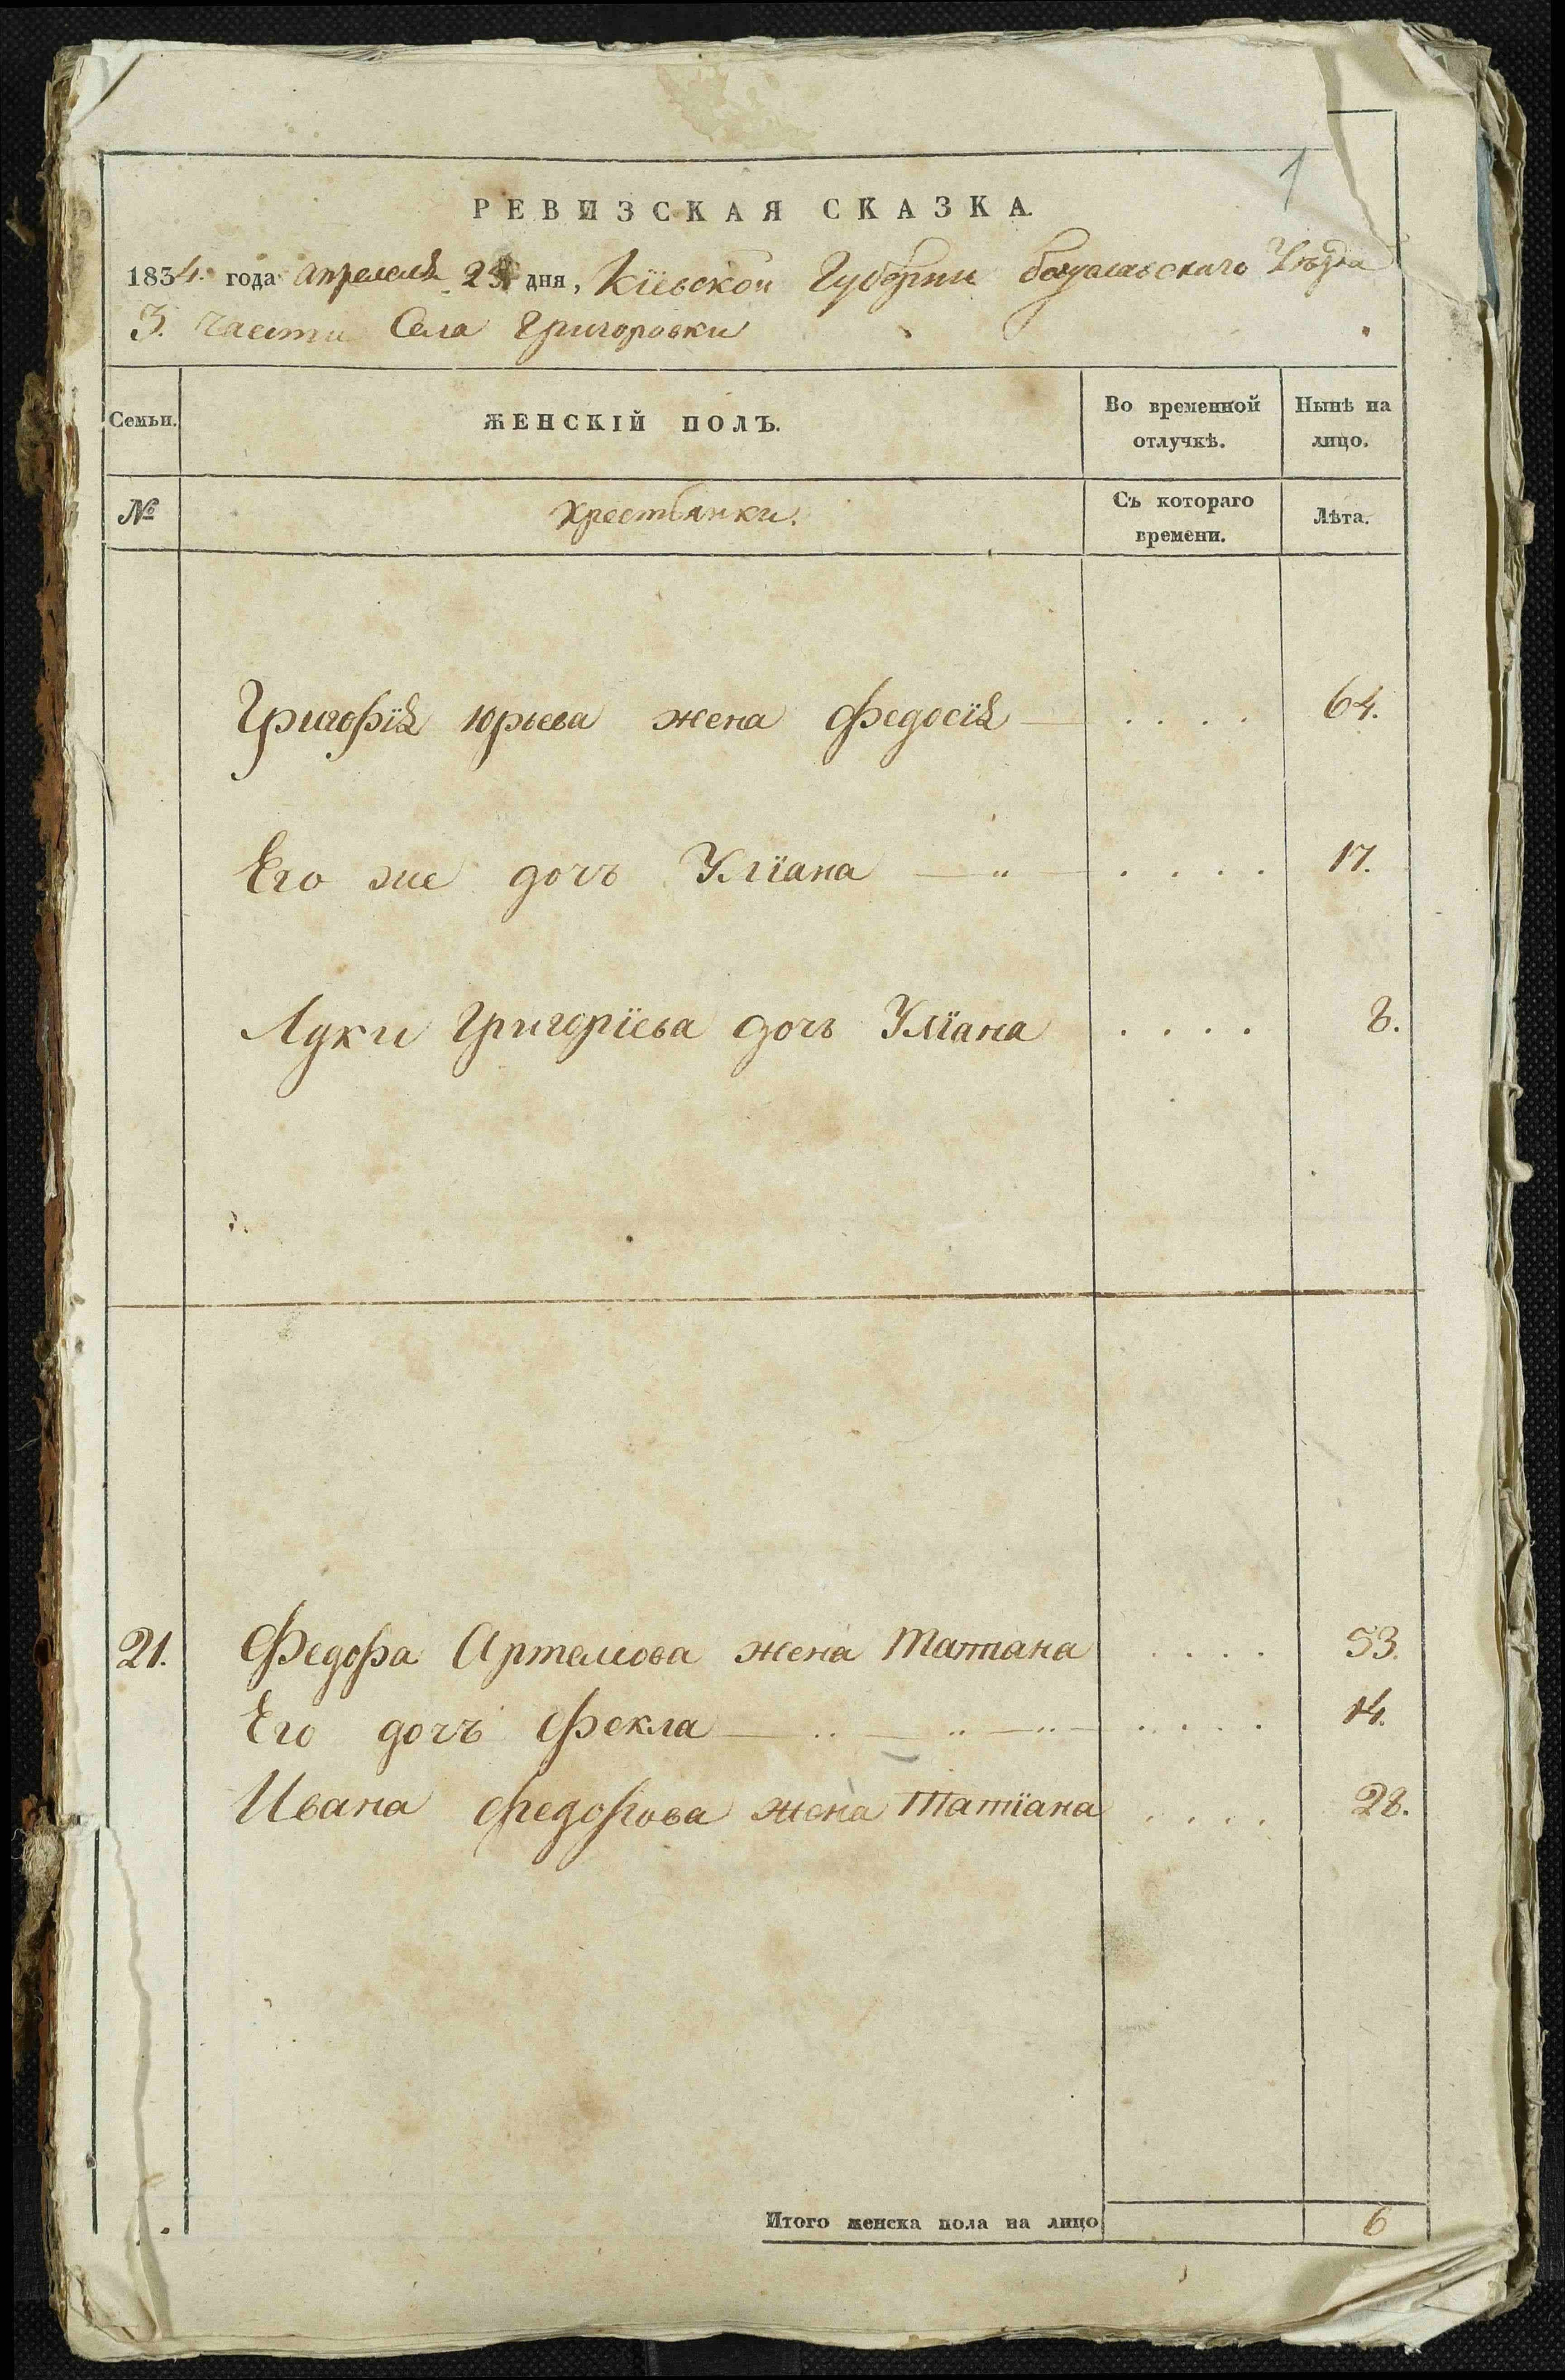 1
РЕВИЗСКАЯ СКАЗКА.
1834. года апрелля 25 дня, Кіевской Губерни богуславскаго Уѣзда
3. части Села Григоровки
Семьи. ЖЕНСКІЙ ПОЛЪ. Во временной отлучкѣ. Нынѣ на лицо.
№ Крестьянки. Съ котораго времени. Лѣта.
Григорія Юрьева жена Федосія — . . . . 64.
Его же дочь Уліана — „ — . . . . 17.
Луки Григоріева дочь Уліана . . . . 8.
21. Федора Артемова жена Татиана . . . . 53.
Его дочь Фекла — „ — „ — „ — . . . . 14.
Ивана Федорова жена Татіана . . . . 28.
Итого женска пола на лицо 6